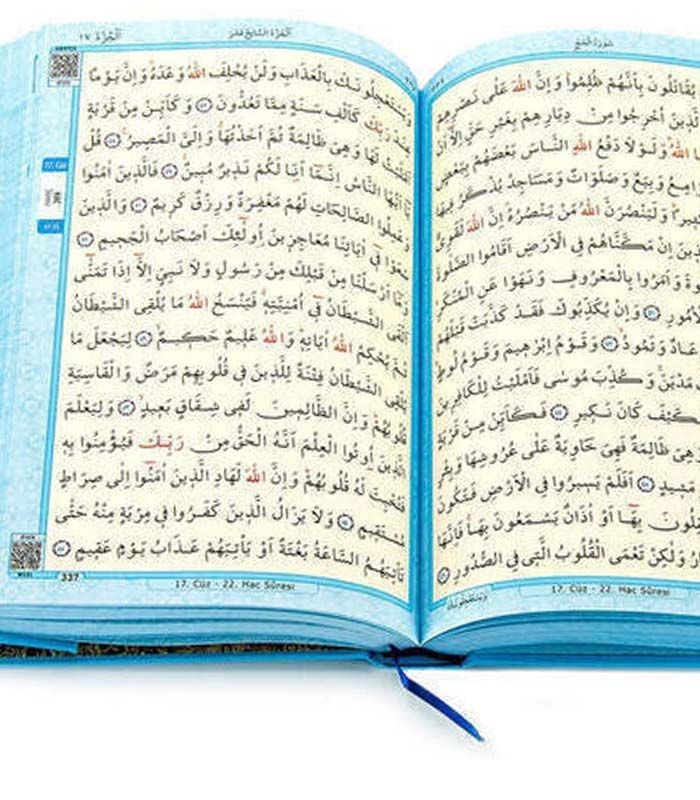 سُورَةُ الْحَجّ
يُقَاتَلُونَ بِاَنَّهُمْ ظُلِمُوا وَاِنَّ اللهَ عَلٰى نَصْرِهِمْ
اَلَّذِينَ اُخْرِجُوا مِنْ دِيَارِهِمْ بِغَيْرِ حَقٍّ اِلَّا اَنْ
اللهُ وَلَوْلَا دَفْعُ اللهِ النَّاسَ بَعْضَهُمْ بِبَعْضٍ
وَبِيَعٌ وَصَلَوَاتٌ وَمَسَاجِدُ يُذْكَرُ فِيهَا
وَلَيَنْصُرَنَّ اللهُ مَنْ يَنْصُرُهُ اِنَّ اللهَ لَقَوِيٌّ
اِنْ مَكَّنَّاهُمْ فِي الْاَرْضِ اَقَامُوا الصَّلٰوةَ
وَاَمَرُوا بِالْمَعْرُوفِ وَنَهَوْا عَنِ الْمُنْكَرِ
الْاُمُورِ ﴿٤١﴾ وَاِنْ يُكَذِّبُوكَ فَقَدْ كَذَّبَتْ قَبْلَهُمْ
عَادٌ وَثَمُودُ ﴿٤٢﴾ وَقَوْمُ اِبْرٰهِيمَ وَقَوْمُ لُوطٍ
مَدْيَنَ وَكُذِّبَ مُوسٰى فَاَمْلَيْتُ لِلْكَافِرِينَ
فَكَيْفَ كَانَ نَكِيرِ ﴿٤٤﴾ فَكَاَيِّنْ مِنْ قَرْيَةٍ
وَهِيَ ظَالِمَةٌ فَهِيَ خَاوِيَةٌ عَلٰى عُرُوشِهَا وَبِئْرٍ
مَشِيدٍ ﴿٤٥﴾ اَفَلَمْ يَسِيرُوا فِي الْاَرْضِ فَتَكُونَ
بِهَا اَوْ اٰذَانٌ يَسْمَعُونَ بِهَا فَاِنَّهَا
وَلٰكِنْ تَعْمَى الْقُلُوبُ الَّتِي فِي الصُّدُورِ ﴿٤٦﴾
17. Cüz - 22. Hac Sûresi
وَيَسْتَعْجِلُونَكَ
اَلْجُزْءُ السَّابِعَ عَشَرَ
اَلْجُزْءُ ١٧
وَيَسْتَعْجِلُونَكَ بِالْعَذَابِ وَلَنْ يُخْلِفَ اللهُ وَعْدَهُ وَاِنَّ يَوْمًا
عِنْدَ رَبِّكَ كَاَلْفِ سَنَةٍ مِمَّا تَعُدُّونَ ﴿٤٧﴾ وَكَاَيِّنْ مِنْ قَرْيَةٍ
اَمْلَيْتُ لَهَا وَهِيَ ظَالِمَةٌ ثُمَّ اَخَذْتُهَا وَاِلَيَّ الْمَصِيرُ ﴿٤٨﴾ قُلْ
يَٓا اَيُّهَا النَّاسُ اِنَّمَٓا اَنَا لَكُمْ نَذِيرٌ مُبِينٌ ﴿٤٩﴾ فَالَّذِينَ اٰمَنُوا
وَعَمِلُوا الصَّالِحَاتِ لَهُمْ مَغْفِرَةٌ وَرِزْقٌ كَرِيمٌ ﴿٥٠﴾ وَالَّذِينَ
سَعَوْا فِٓي اٰيَاتِنَا مُعَاجِزِينَ اُولٰٓئِكَ اَصْحَابُ الْجَحِيمِ ﴿٥١﴾
وَمَٓا اَرْسَلْنَا مِنْ قَبْلِكَ مِنْ رَسُولٍ وَلَا نَبِيٍّ اِلَّٓا اِذَا تَمَنّٰٓى
اَلْقَى الشَّيْطَانُ فِٓي اُمْنِيَّتِهِ فَيَنْسَخُ اللهُ مَا يُلْقِي الشَّيْطَانُ
ثُمَّ يُحْكِمُ اللهُ اٰيَاتِهِ وَاللهُ عَلِيمٌ حَكِيمٌ ﴿٥٢﴾ لِيَجْعَلَ مَا
يُلْقِي الشَّيْطَانُ فِتْنَةً لِلَّذِينَ فِي قُلُوبِهِمْ مَرَضٌ وَالْقَاسِيَةِ
قُلُوبُهُمْ وَاِنَّ الظَّالِمِينَ لَفِي شِقَاقٍ بَعِيدٍ ﴿٥٣﴾ وَلِيَعْلَمَ
الَّذِينَ اُوتُوا الْعِلْمَ اَنَّهُ الْحَقُّ مِنْ رَبِّكَ فَيُؤْمِنُوا بِهِ
فَتُخْبِتَ لَهُ قُلُوبُهُمْ وَاِنَّ اللهَ لَهَادِ الَّذِينَ اٰمَنُٓوا اِلٰى صِرَاطٍ
مُسْتَقِيمٍ ﴿٥٤﴾ وَلَا يَزَالُ الَّذِينَ كَفَرُوا فِي مِرْيَةٍ مِنْهُ حَتّٰى
تَاْتِيَهُمُ السَّاعَةُ بَغْتَةً اَوْ يَاْتِيَهُمْ عَذَابُ يَوْمٍ عَقِيمٍ ﴿٥٥﴾
337
17. Cüz - 22. Hac Sûresi